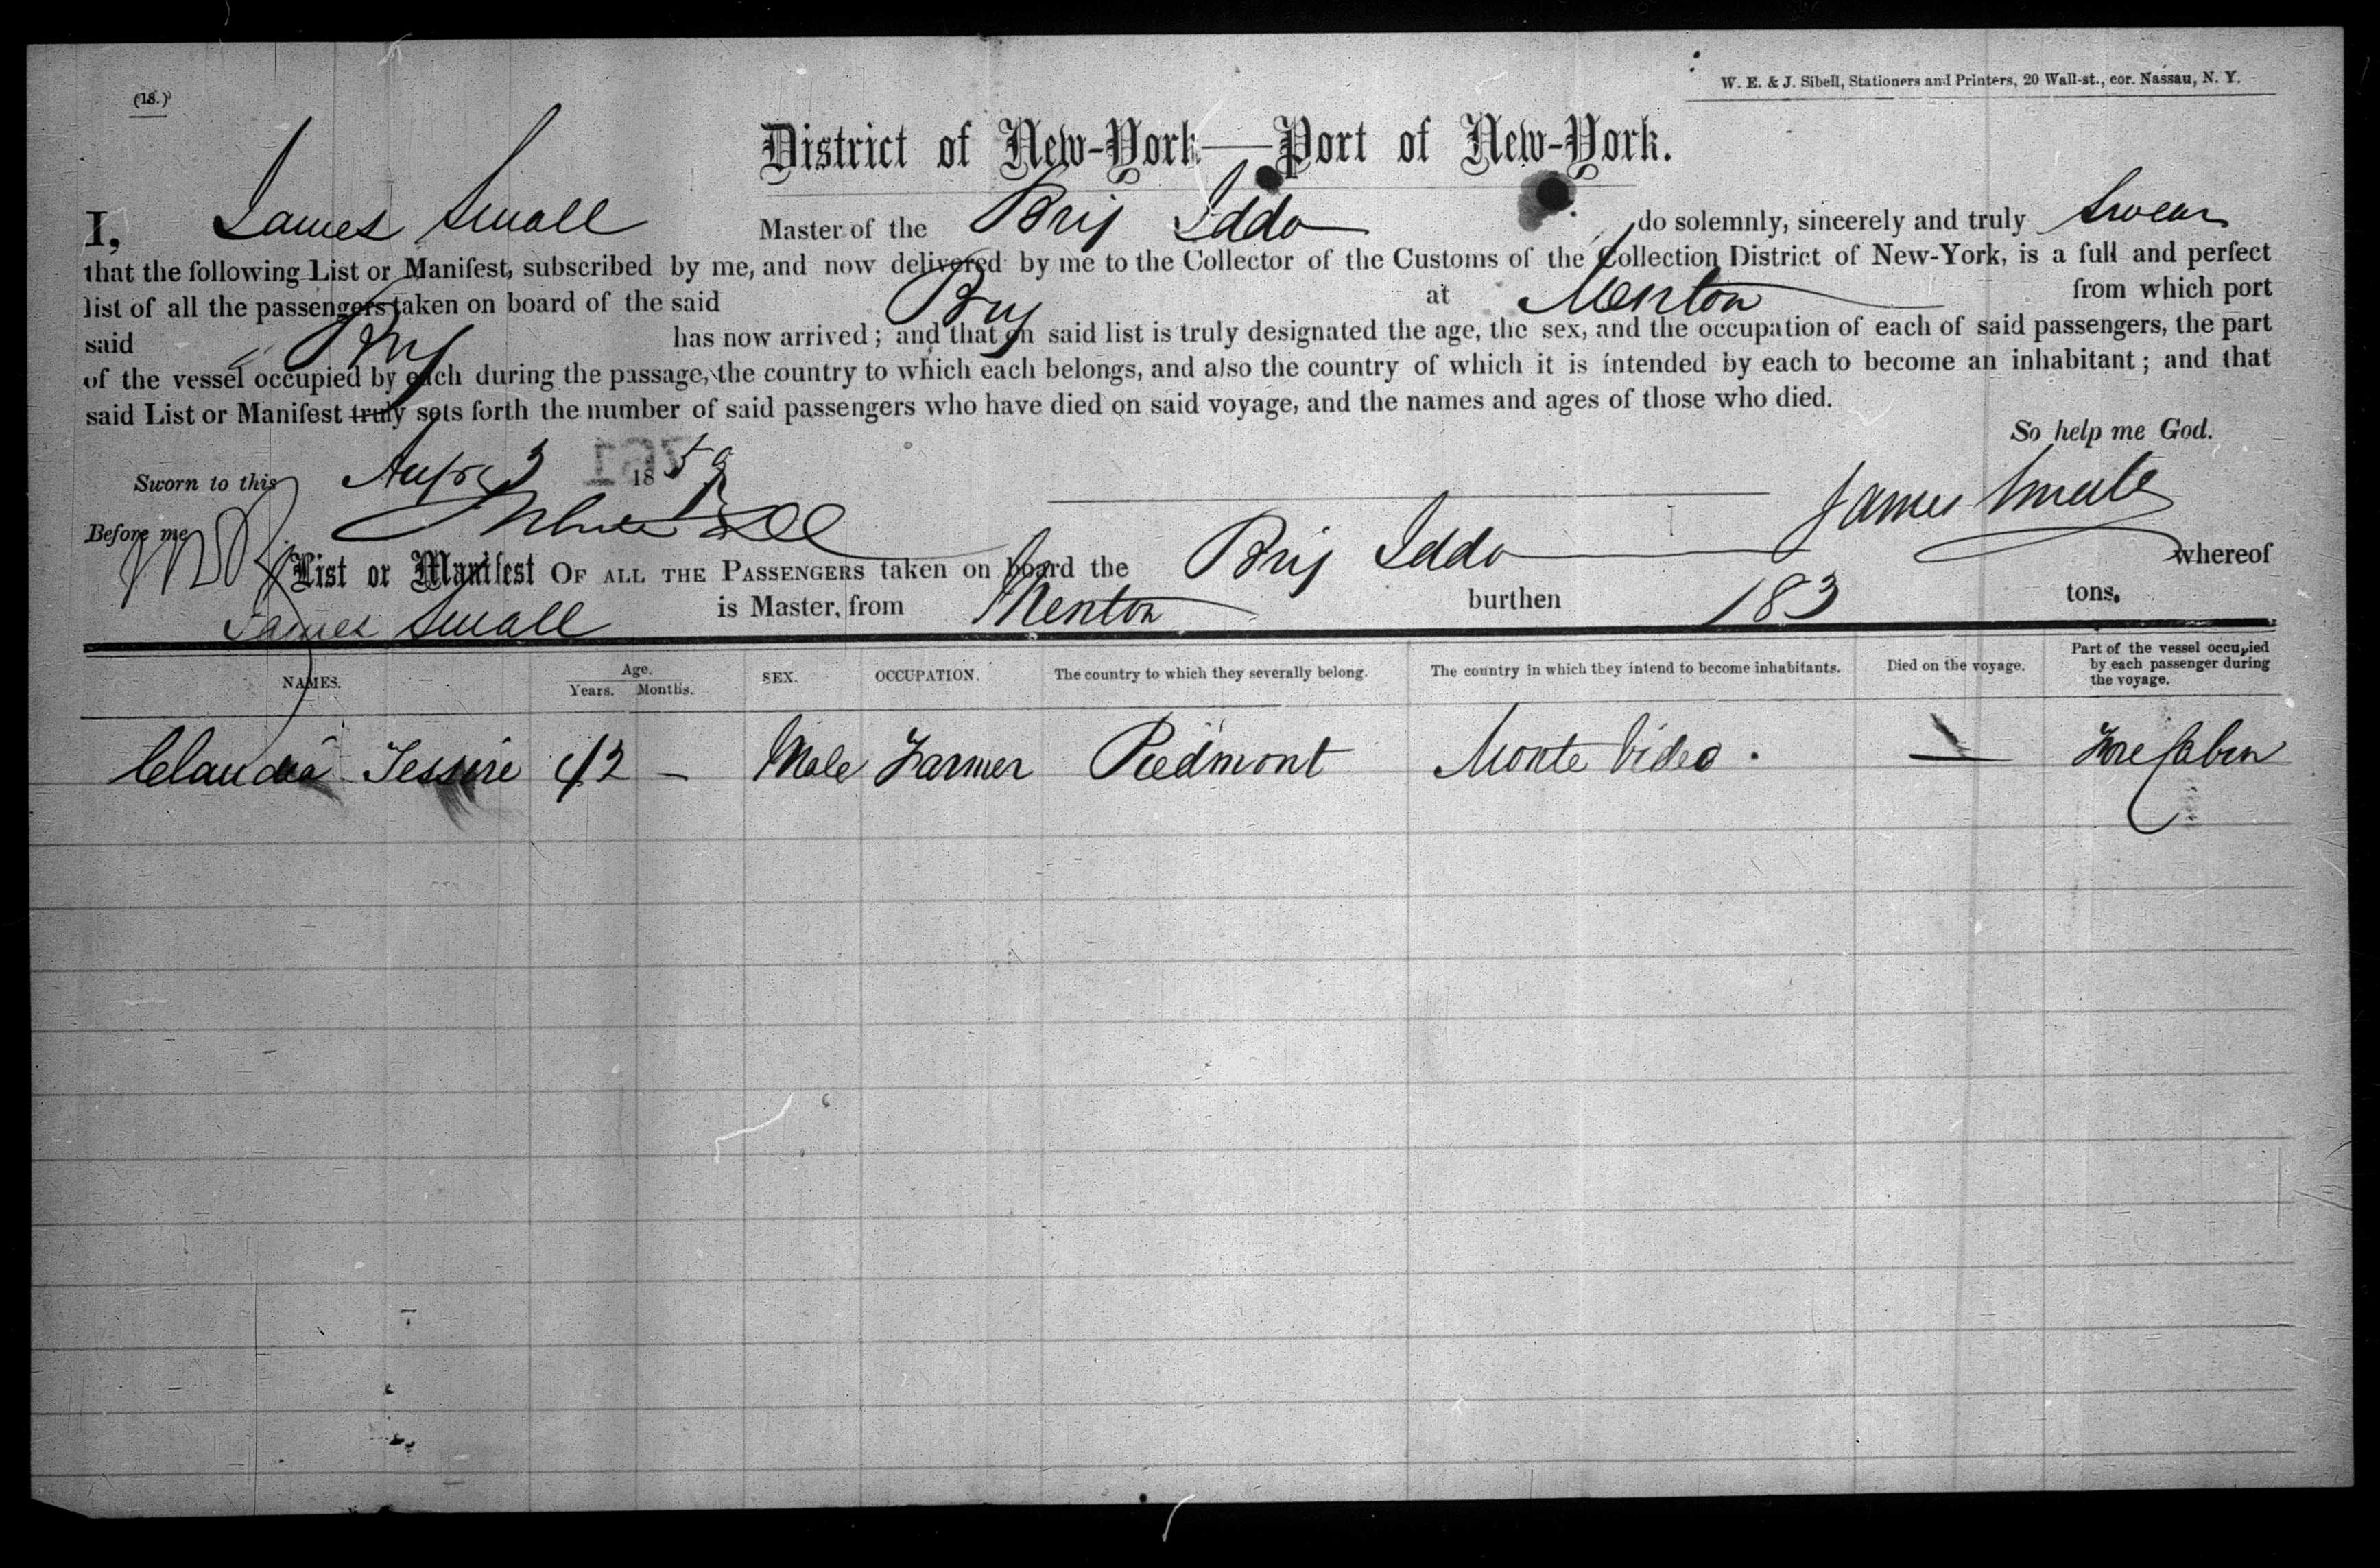 (18.)
W. E. & J. Sibell, Stationers and Printers, 20 Wall-st., cor. Nassau, N. Y.
District of New-York—Port of New-York.
I, James Small Master of the Brig Iddo do solemnly, sincerely and truly swear
that the following List or Manifest, subscribed by me, and now delivered by me to the Collector of the Customs of the Collection District of New-York, is a full and perfect
list of all the passengers taken on board of the said Brig at Menton from which port
said Brig has now arrived; and that on said list is truly designated the age, the sex, and the occupation of each of said passengers, the part
of the vessel occupied by each during the passage, the country to which each belongs, and also the country of which it is intended by each to become an inhabitant; and that
said List or Manifest truly sets forth the number of said passengers who have died on said voyage, and the names and ages of those who died.
So help me God.
Sworn to this 3 1859
James Small
Before me
List or Manifest OF ALL THE PASSENGERS taken on board the Brig Iddo whereof
James Small is Master, from Menton burthen 183 tons.
NAMES. Age. Years. Months. SEX. OCCUPATION. The country to which they severally belong. The country in which they intend to become inhabitants. Died on the voyage. Part of the vessel occupied by each passenger during the voyage.
Tessire 42 — Male Farmer Piedmont Monte Video . — Fore Cabin